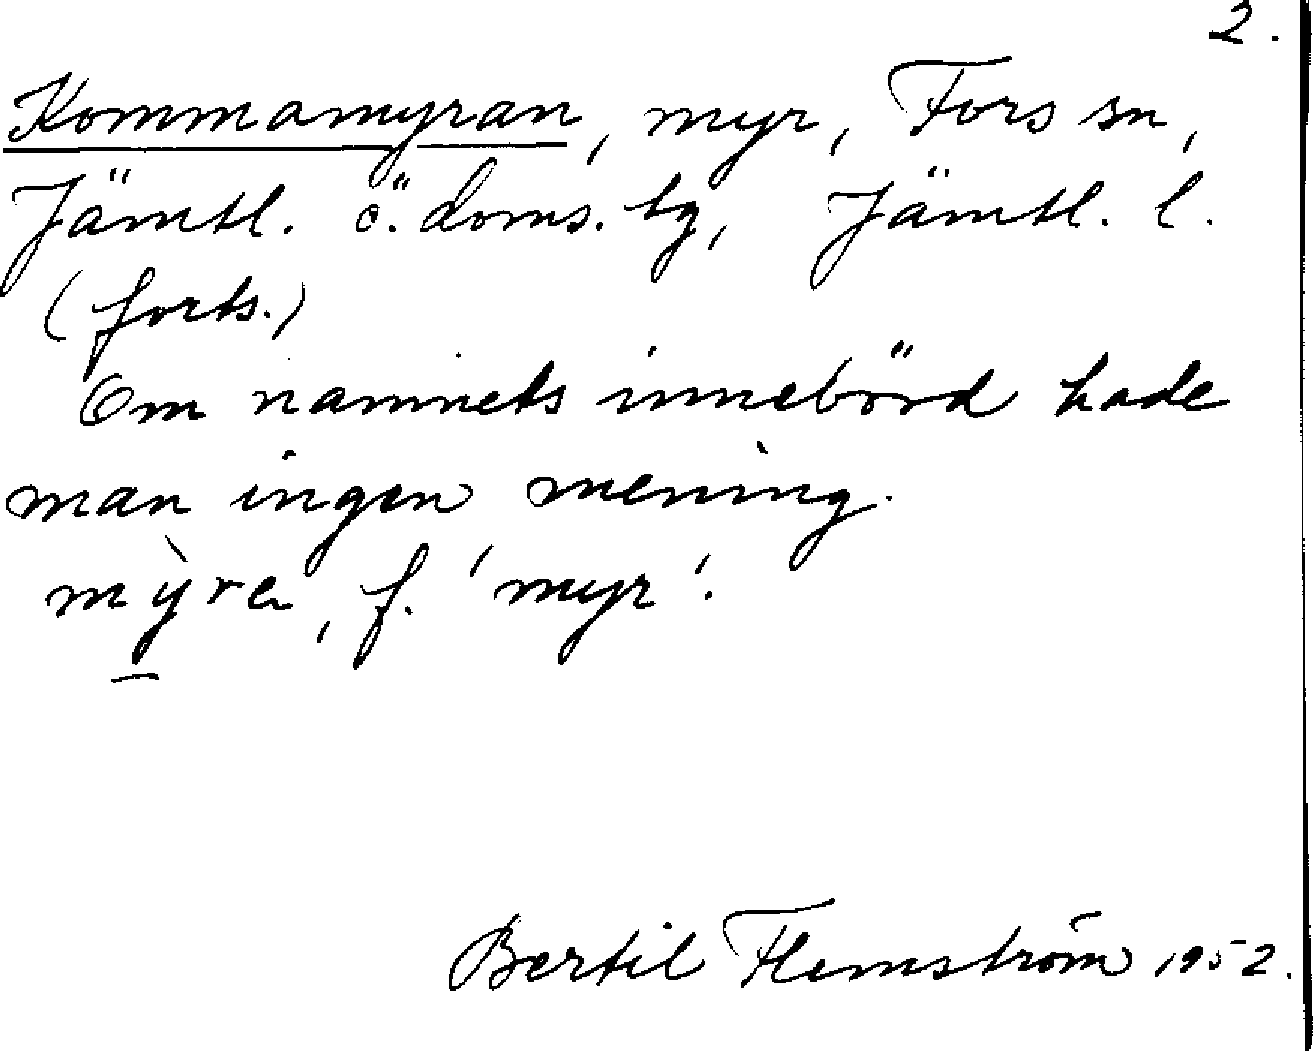 2.
Kommamyran, myr, Fors sn,
Jämtl. ö. doms. tg, Jämtl. l.
(forts.)
Om namnets innebörd hade
man ingen mening.
mỳra, f. 'myr'.
Bertil Flemström 1952.